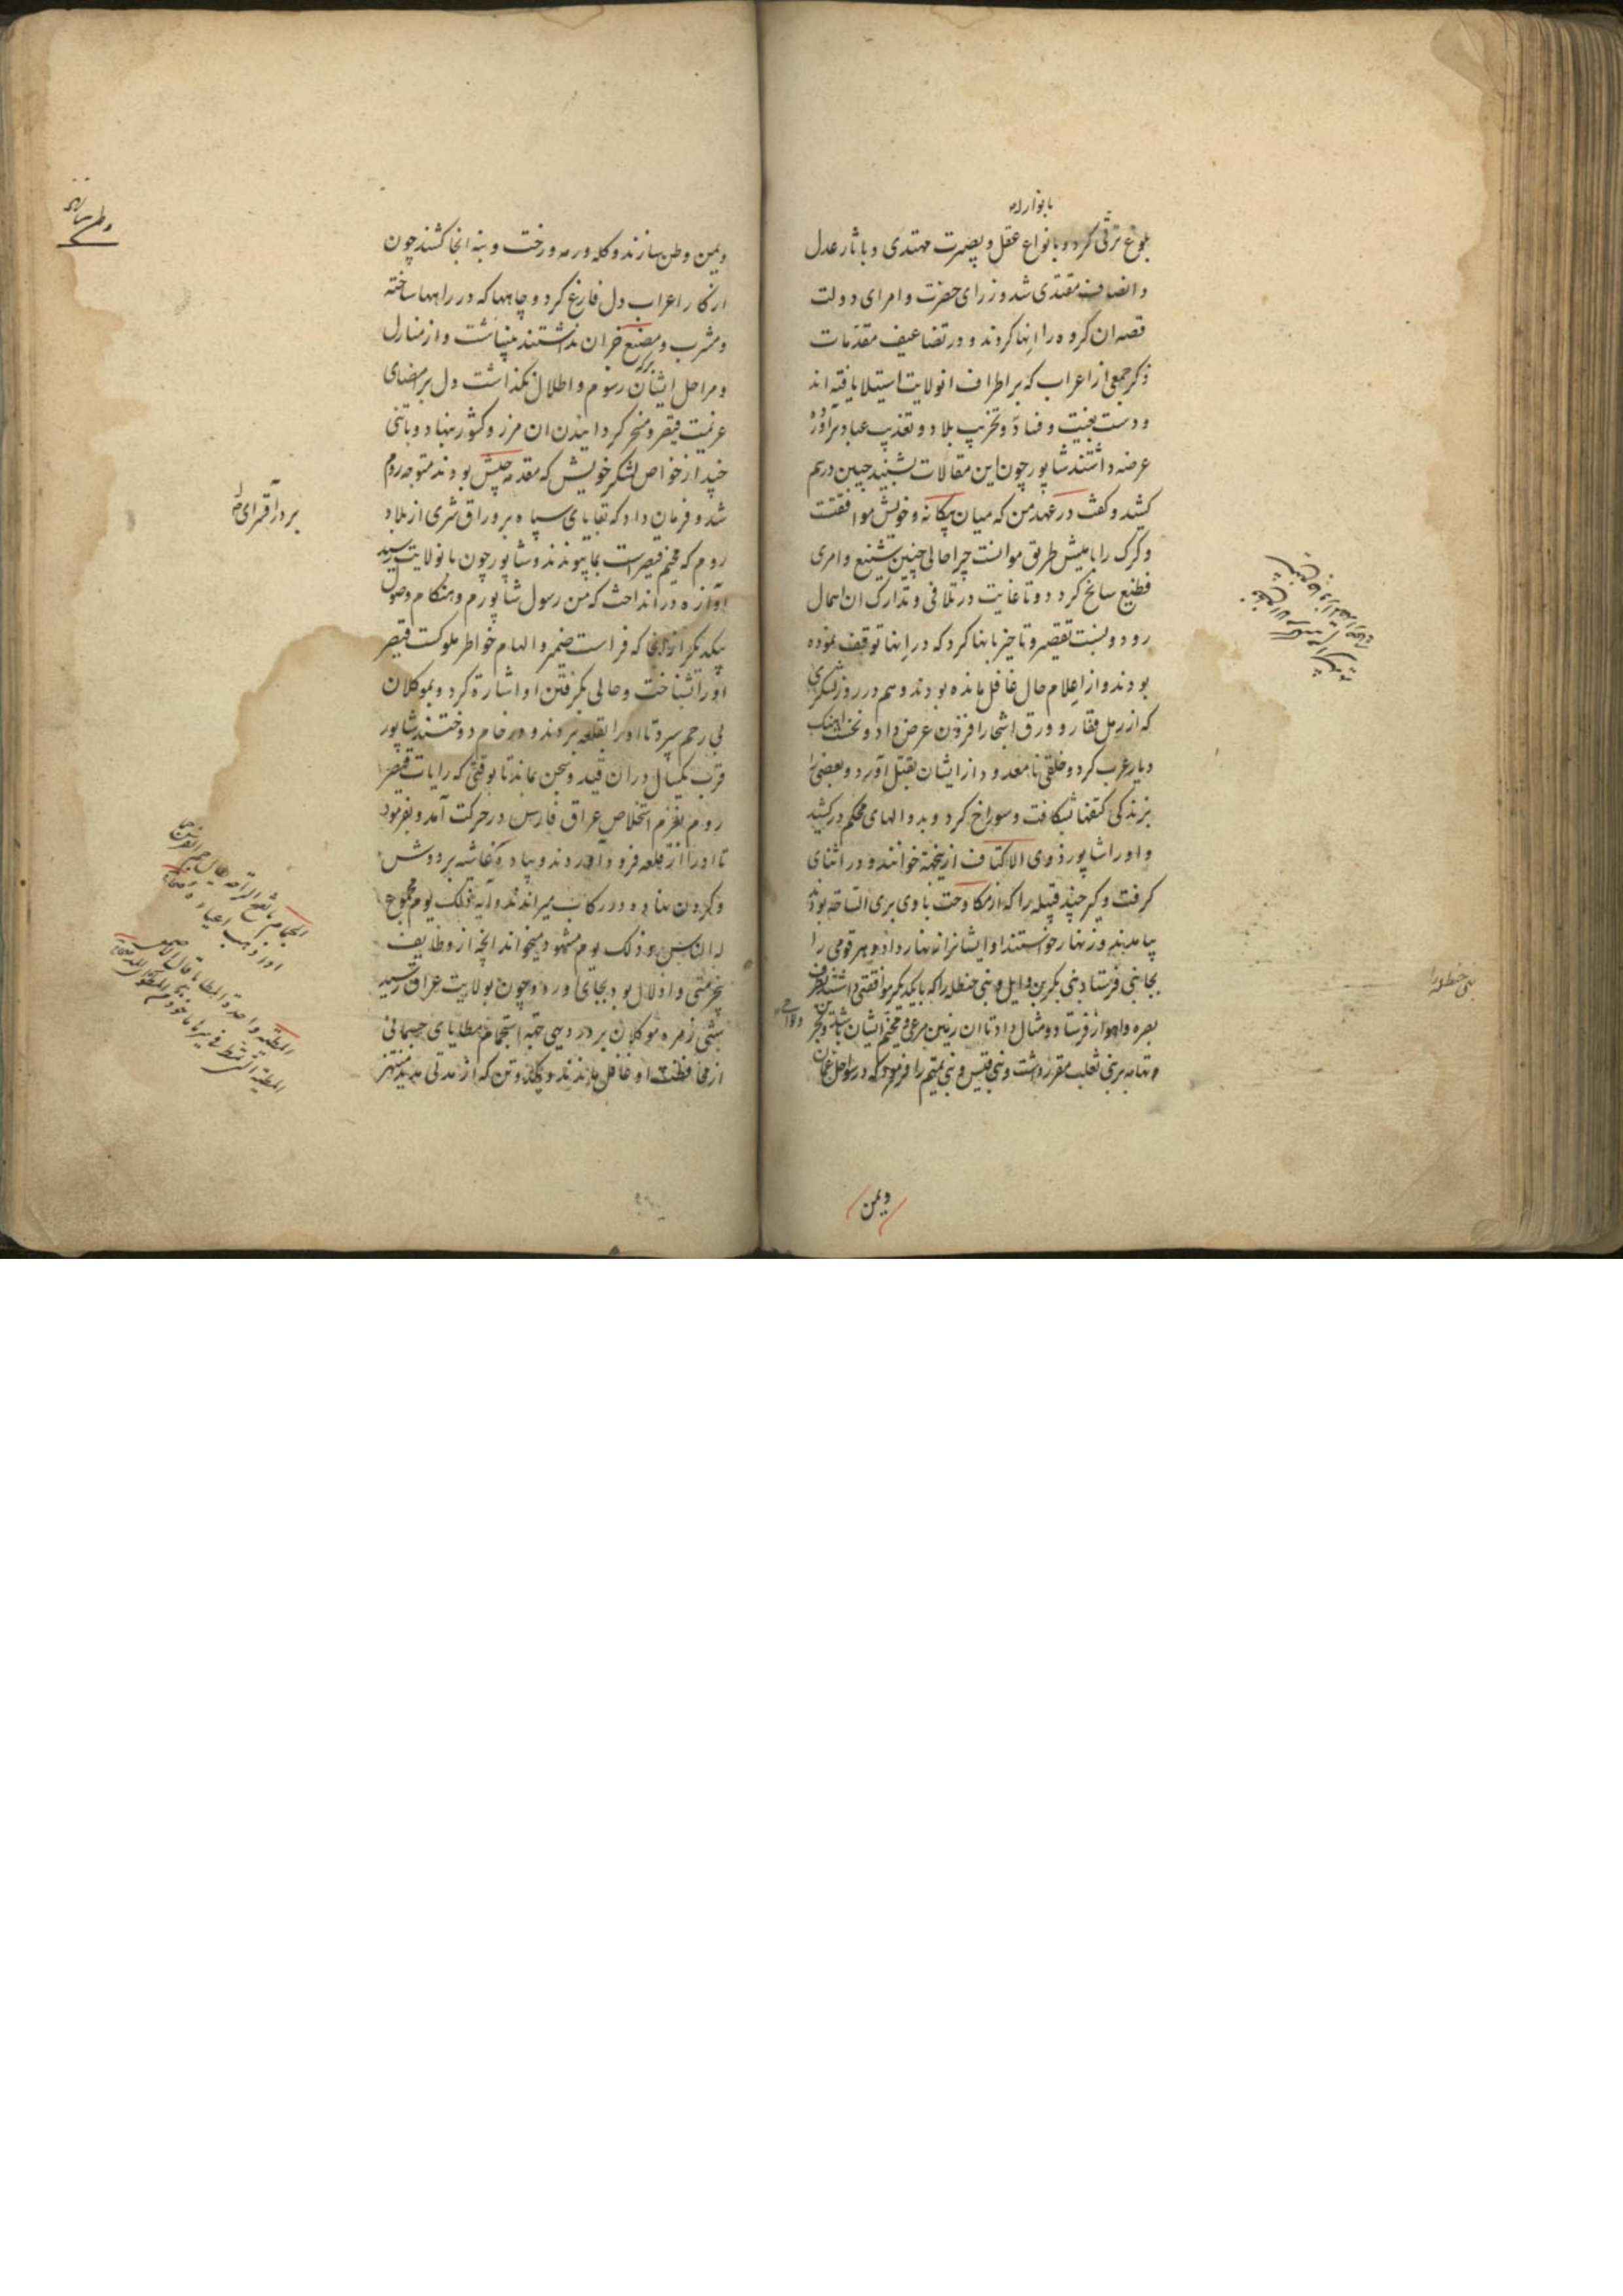 بانوار
بلوغ ترقی کرد و بانواع عقل و بصیرت مهتدی و باثار عدل
و انصاف مقتدی شد وزرای حضرت و امرای دولت
قصه ان کروه را انها کردند و در تضاعیف مقدمات
ذکر جمعی از اعراب که بر اطراف انولایت استیلا یافته اند
و دست بعیث و فساد و تخریب بلاد و تعذیب عباد برآورده
عرضه داشتند شاپور چون این مقالات بشنید جبین درهم
کشید و کفت در عهد من که میان بیکانه و خویش موافقتست
و کرک را با میش طریق موانست چرا حالی چنین شنیع و امری
فظیع سانح کردد و تا غایت در تلافی و تدارک ان اهمال
رود و بنسبت تقصیر و تاخیر بانها کرد که در انها توقف نموده
بودند و از اعلام حال غافل مانده بودند و هم در روز لشکری
که از رمل قفار و ورق اشجار افزون عرض داد و نخست اهنک
دیار عرب کرد و خلقی نامعدود از ایشان بقتل آورد و بعضی را
بزندکی کتفها بشکافت و سوراخ کرد و بدوالهای محکم درکشید
و او را شاپور ذوی الاکتاف ازینجهة خوانند و در اثنای
کرفت و کیر چند قبیله را که از مکاوحت بادی بری الساحه بودند
بیامدند و زنهار خواستند او ایشانرا زنهار داد و هر قومی را
بجانبی فرستاد بنی بکر بن وایل و بنی حنظله را که با یکدیکر موافقتی داشتند بطرف
بصره و اهواز فرستاد و مثال داد تا ان زمین مرعی و مخیم ایشان باشد و هجر
و تهامه بر بنی ثعلب مقرر داشت و بنی قیس و بنی تمیم را فرمود که در سواحل عمان
بنی حنظله را
و یمن
و یمن وطن سازند و کله و رمه و رخت و بنه انجا کشند چون
از کار اعراب دل فارغ کرد و چاهها که در راهها ساخته
و مشرب و مصنع جز ان نداشتند بینباشت و از منازل
و مراحل ایشان رسوم و اطلال نکذاشت دل بر امضای
عزیمت قیصر و مسخر کردانیدن ان مرز و کشور نهاد و با تنی
چند از خواص لشکر خویش که مقدمه جیش بودند متوجه روم
شد و فرمان داد که بقایای سپاه بر وراق شری از بلاد
روم که مخیم قیصرست بما پیوندند و شاپور چون بانولایت رسید
آوازه در انداخت که من رسول شاپورم و هنکام وصول
بیکدیکر از انجا که فراست ضمیر و الهام خواطر ملوکست قیصر
او را بشناخت و حالی بکرفتن او اشارة کرد و بموکلان
بی رحم سپرد تا او را بقلعه بردند و در خام دوختند شاپور
قرب یکسال در ان قید و سجن بماند تا بوقتی که رایات قیصر
روم بعزم استخلاص عراق و فارس در حرکت آمد و بفرمود
تا او را از قلعه فرود آوردند و پیاده غاشیه بر دوش
و کردن نهاده در رکاب میراندند و آیه ذلک یوم مجموع
له الناس و ذلک یوم مشهود میخواند انچه از وظایف
بیحرمتی و اذلال بود بجای اورد و چون بولایت عراق رسید
شبی زمره موکلان بر در دیهی جهة استجمام مطایای جسمانی
از محافظت او غافل ماندند و یکدو تن که از مدتی مدید منتهز
وطن سازند
بر در آقسرای